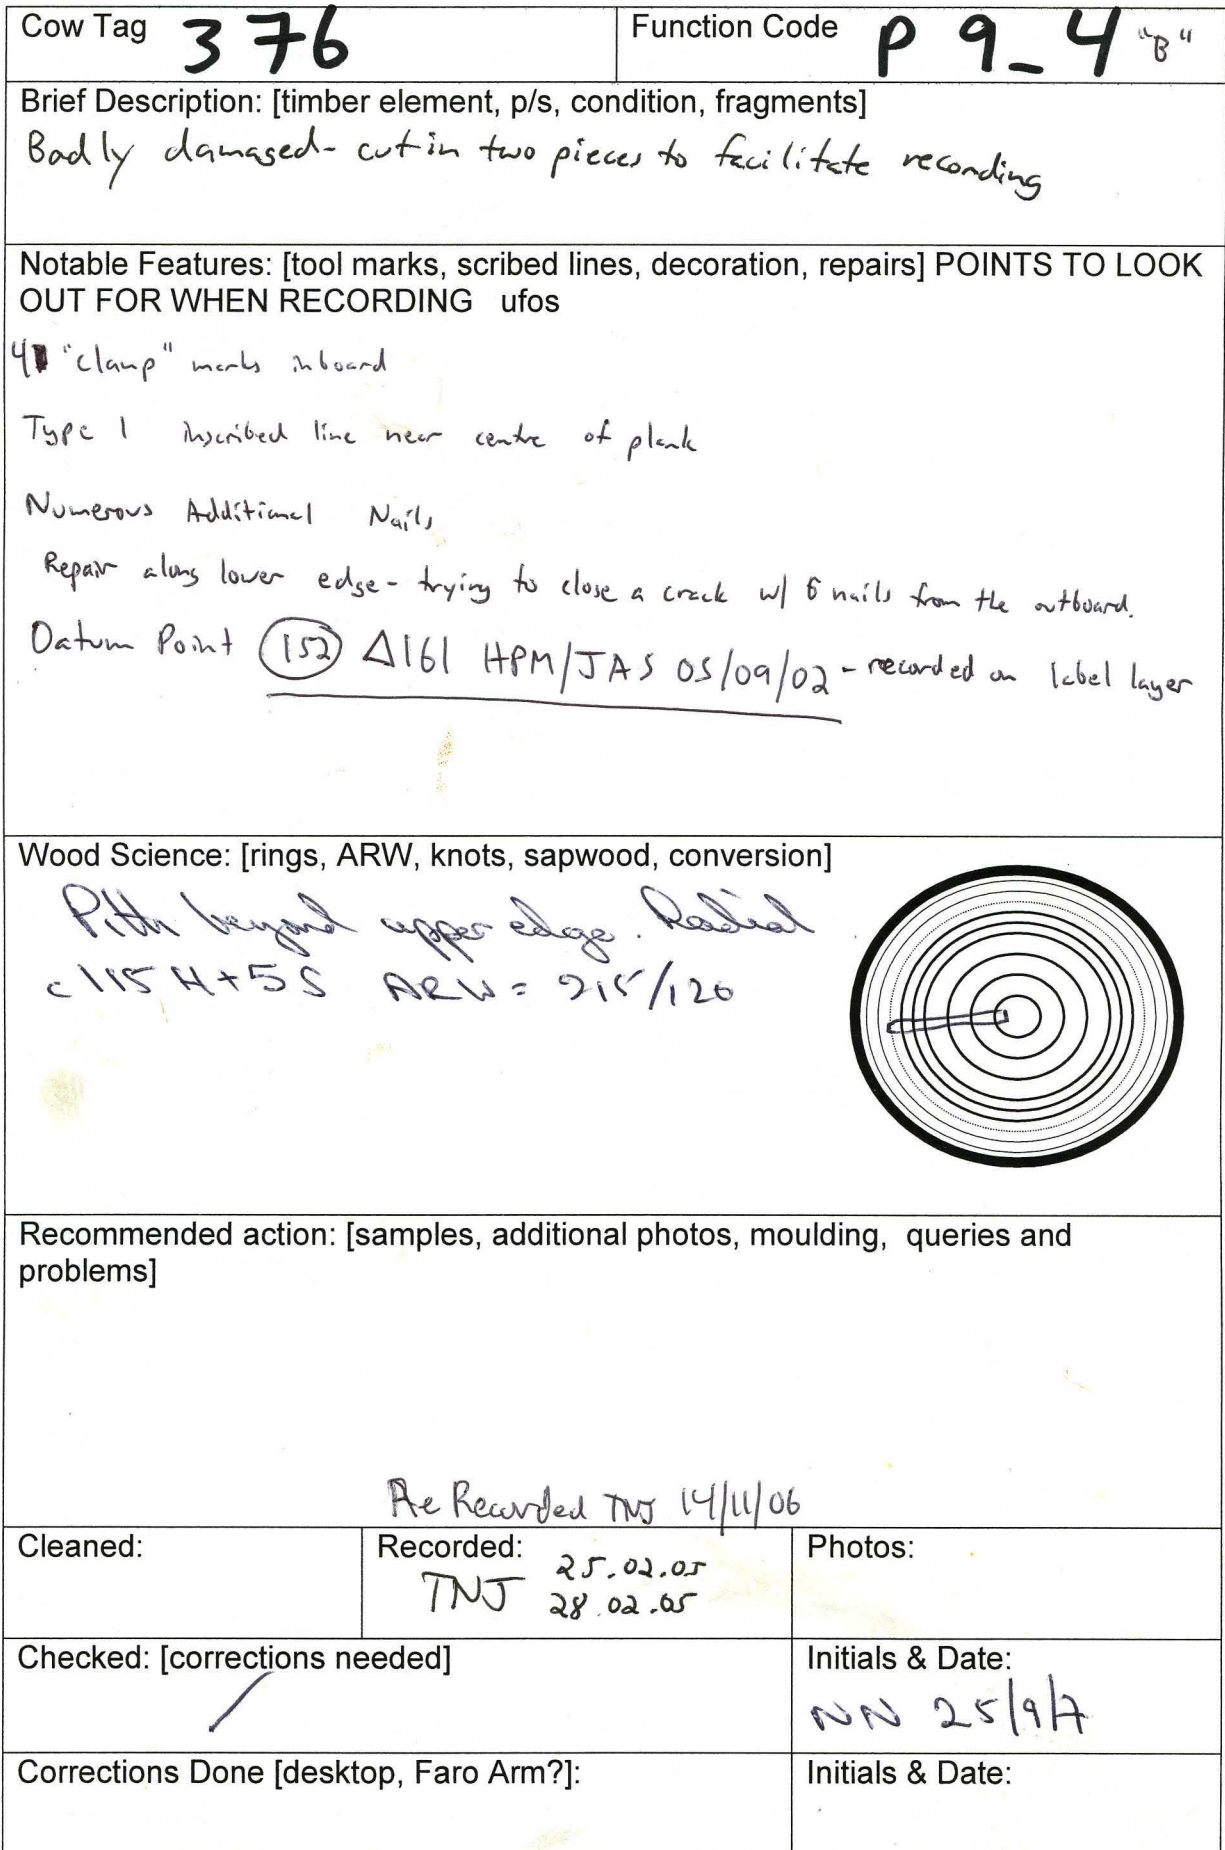 Cow Tag 376
Function Code P 9_4 "B"
Brief Description: [timber element, p/s, condition, fragments]
Badly damaged- cut in two pieces to facilitate recording
Notable Features: [tool marks, scribed lines, decoration, repairs] POINTS TO LOOK
OUT FOR WHEN RECORDING ufos
4 "clamp" marks inboard
Type 1 inscribed line near centre of plank
Numerous Additional Nails
Repair along lower edge - trying to close a crack w/ 6 nails from the outboard.
Datum Point 152 Δ161 HPM/JAS 05/09/02 - recorded on label layer
Wood Science: [rings, ARW, knots, sapwood, conversion]
Pith beyond upper edge. Radial
c115 H+5S ARW = 215/120
Recommended action: [samples, additional photos, moulding, queries and
problems]
Re Recorded TNJ 14/11/06
Cleaned:
Recorded:
TNJ 25.02.05
28.02.05
Photos:
Checked: [corrections needed]
/
Initials & Date:
NN 25/9/7
Corrections Done [desktop, Faro Arm?]:
Initials & Date: